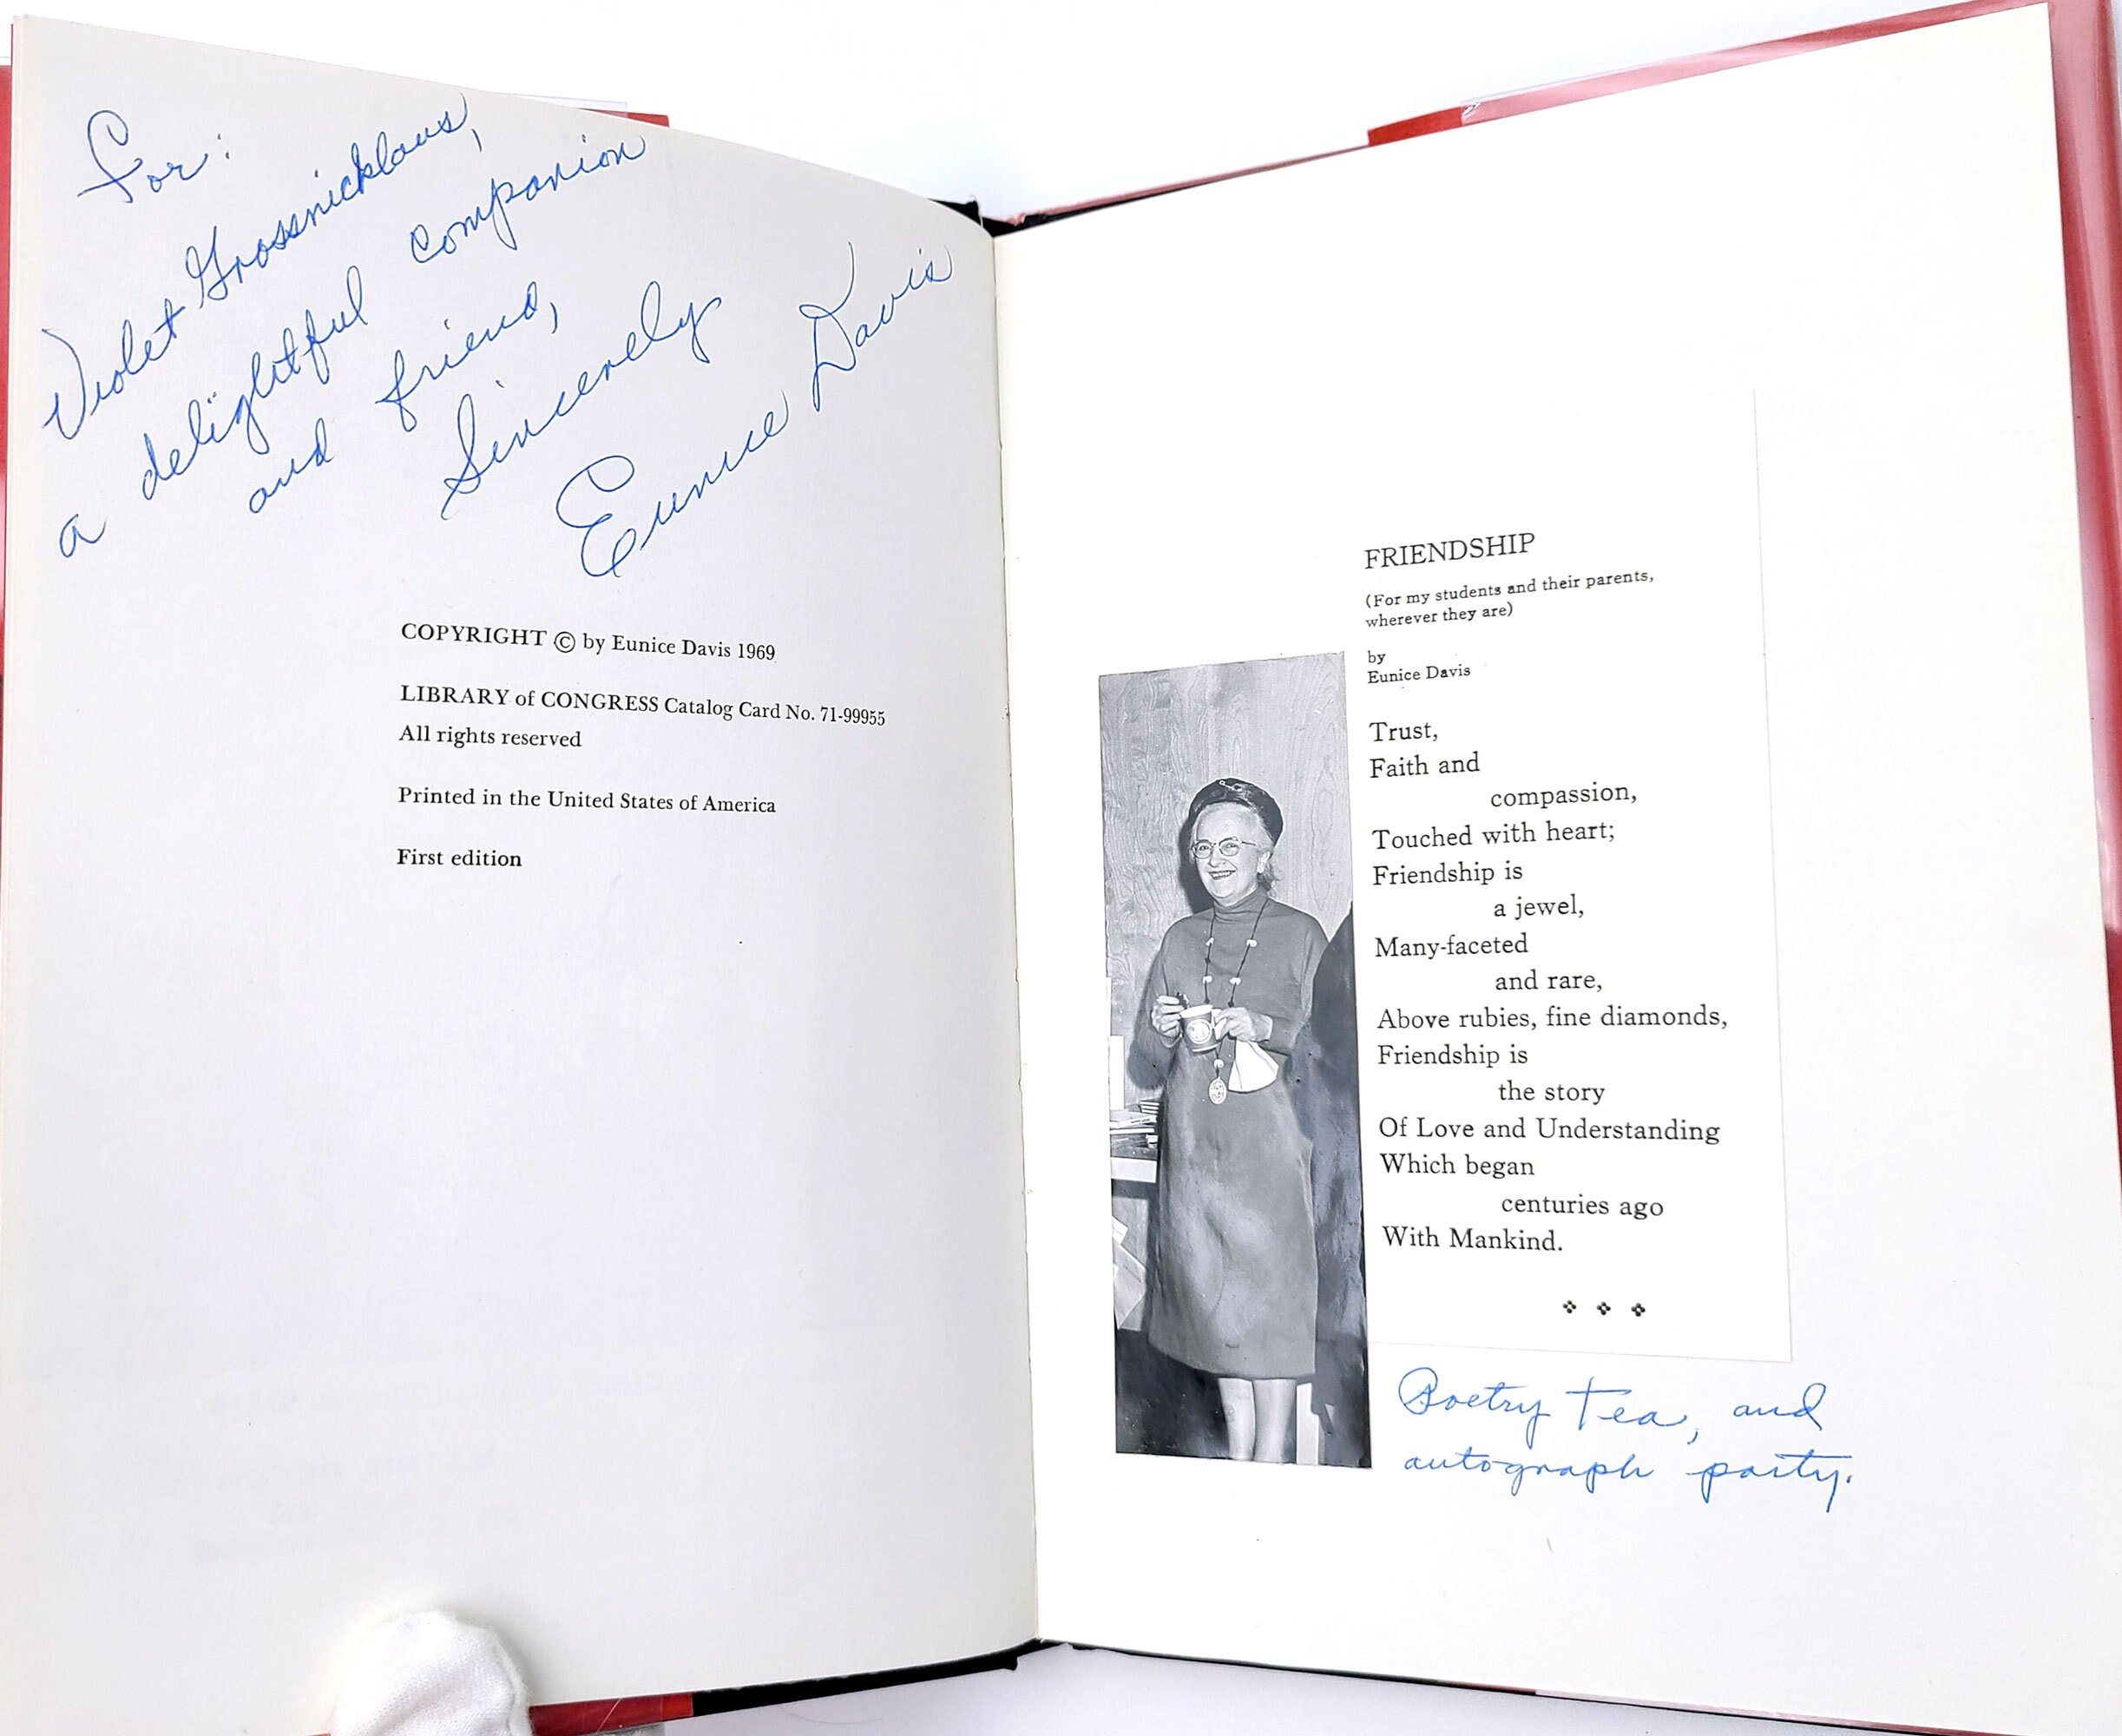 For:
Violet Grossnicklaus,
a delightful companion
and friend,
Sincerely
Eunice Davis
COPYRIGHT © by Eunice Davis 1969
LIBRARY of CONGRESS Catalog Card No. 71-99955
All rights reserved
Printed in the United States of America
First edition
FRIENDSHIP
(For my students and their parents,
wherever they are)
by
Eunice Davis
Trust,
Faith and
compassion,
Touched with heart;
Friendship is
a jewel,
Many-faceted
and rare,
Above rubies, fine diamonds,
Friendship is
the story
Of Love and Understanding
Which began
centuries ago
With Mankind.
Poetry Tea, and
autograph party.